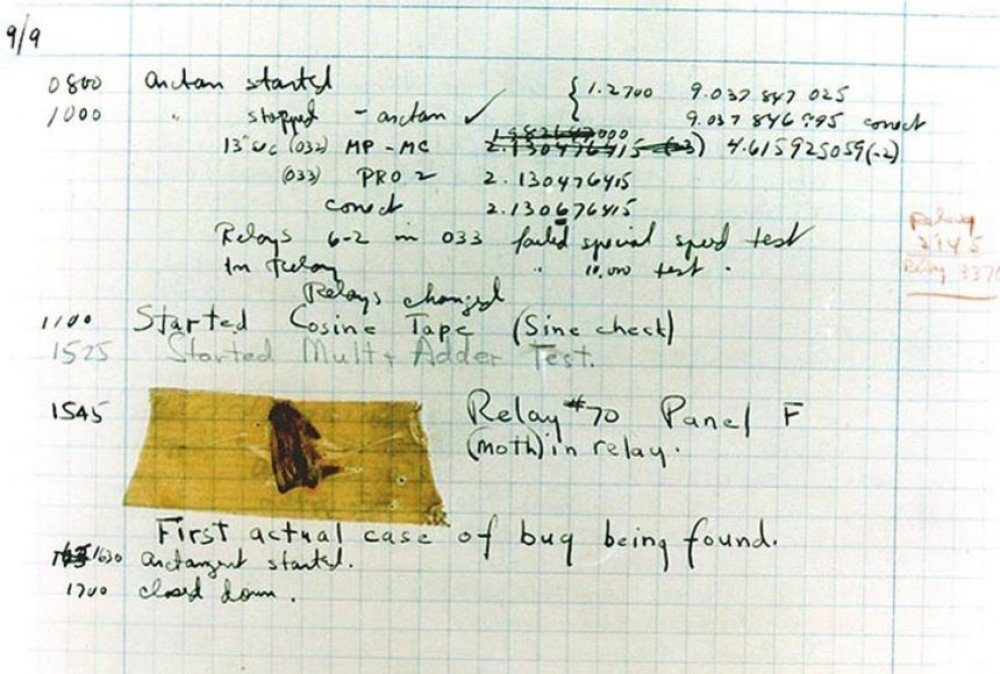 9/9
0800 arctan started
1000 " stopped - arctan ✓ { 1.2700 9.037 847 025
9.037 846 995 correct
13"uc (032) MP - MC 2.130476415 (-3) 4.615925059(-2)
(033) PRO 2 2.130476415
correct 2.130676415
Relays 6-2 in 033 failed special speed test
In Relay " 10.000 test .
Relay
2145
Relay 3370
Relays changed
1100 Started Cosine Tape (Sine check)
1525 Started Mult + Adder Test.
1545 Relay #70 Panel F
(moth) in relay.
First actual case of bug being found.
1630 arctangent started.
1700 closed down.